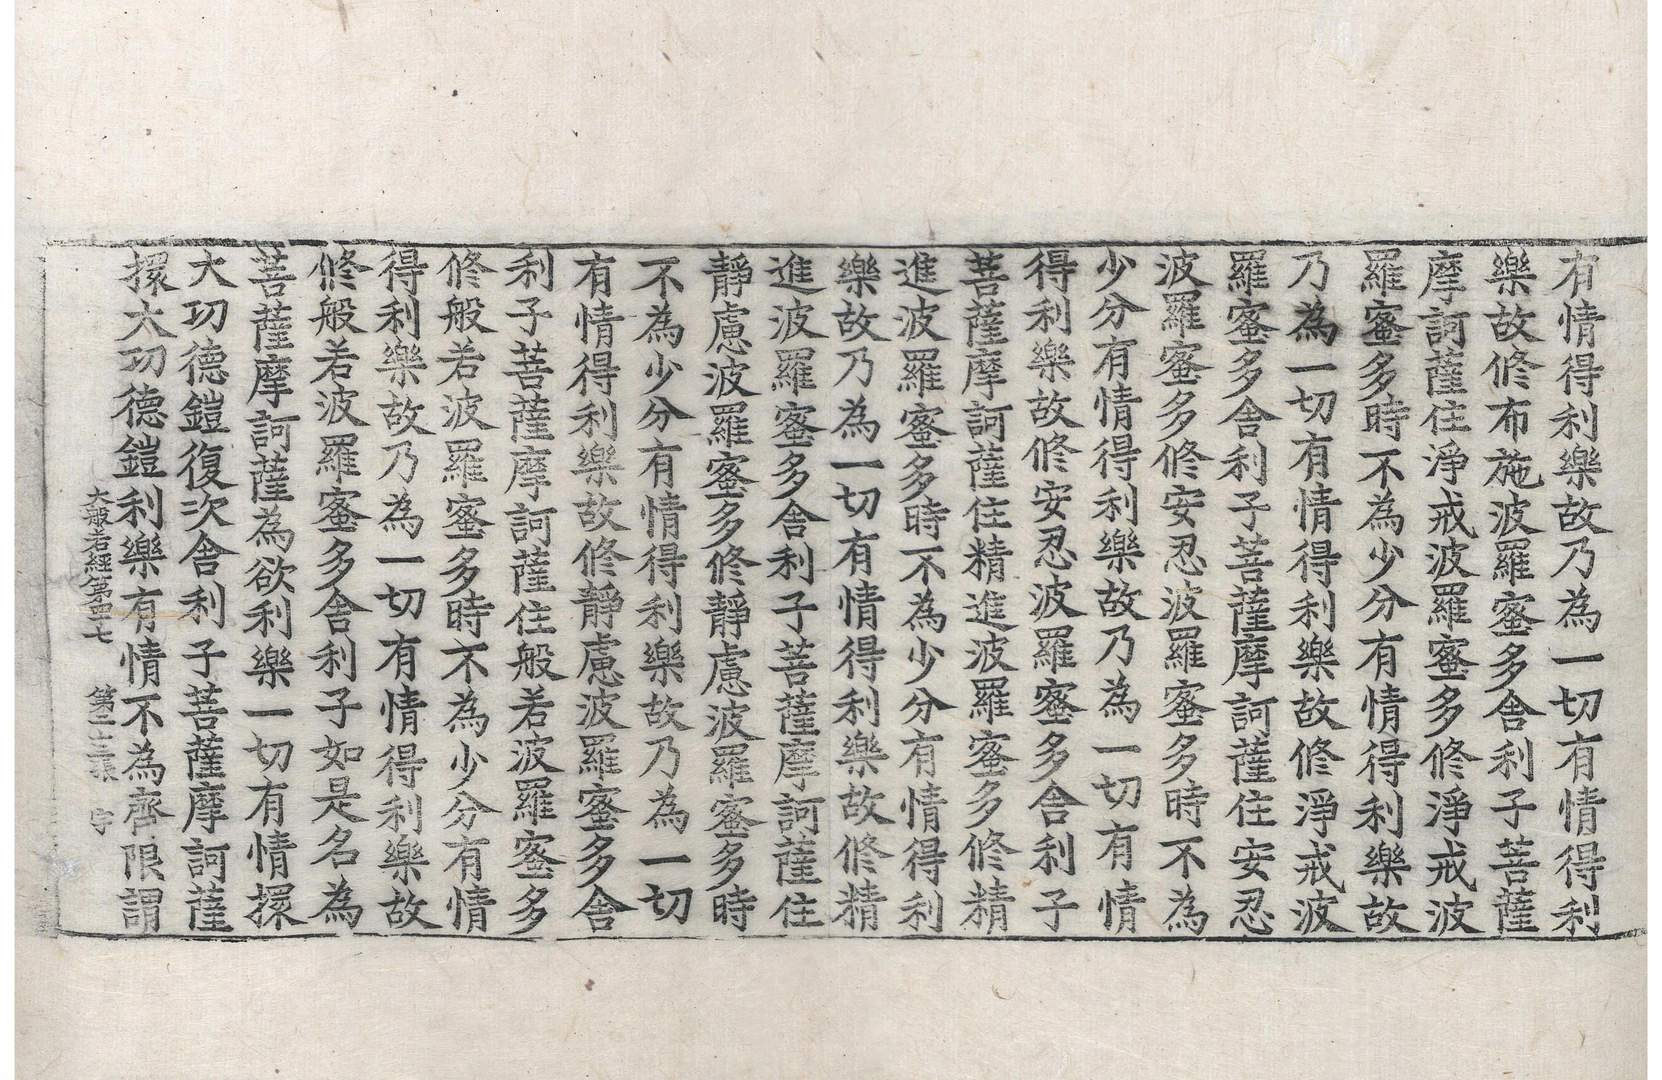 有情得利樂故乃為一切有情得利
樂故修布施波羅蜜多舍利子菩薩
摩訶薩住淨戒波羅蜜多修淨戒波
羅蜜多時不為少分有情得利樂故
乃為一切有情得利樂故修淨戒波
羅蜜多舍利子菩薩摩訶薩住安忍
波羅蜜多修安忍波羅蜜多時不為
少分有情得利樂故乃為一切有情
得利樂故修安忍波羅蜜多舍利子
菩薩摩訶薩住精進波羅蜜多修精
進波羅蜜多時不為少分有情得利
樂故乃為一切有情得利樂故修精
進波羅蜜多舍利子菩薩摩訶薩住
靜慮波羅蜜多修靜慮波羅蜜多時
不為少分有情得利樂故乃為一切
有情得利樂故修靜慮波羅蜜多舍
利子菩薩摩訶薩住般若波羅蜜多
修般若波羅蜜多時不為少分有情
得利樂故乃為一切有情得利樂故
修般若波羅蜜多舍利子如是名為
菩薩摩訶薩為欲利樂一切有情擐
大功德鎧復次舍利子菩薩摩訶薩
擐大功德鎧利樂有情不為齊限謂
大般若經第四十七 第二十三張 宇